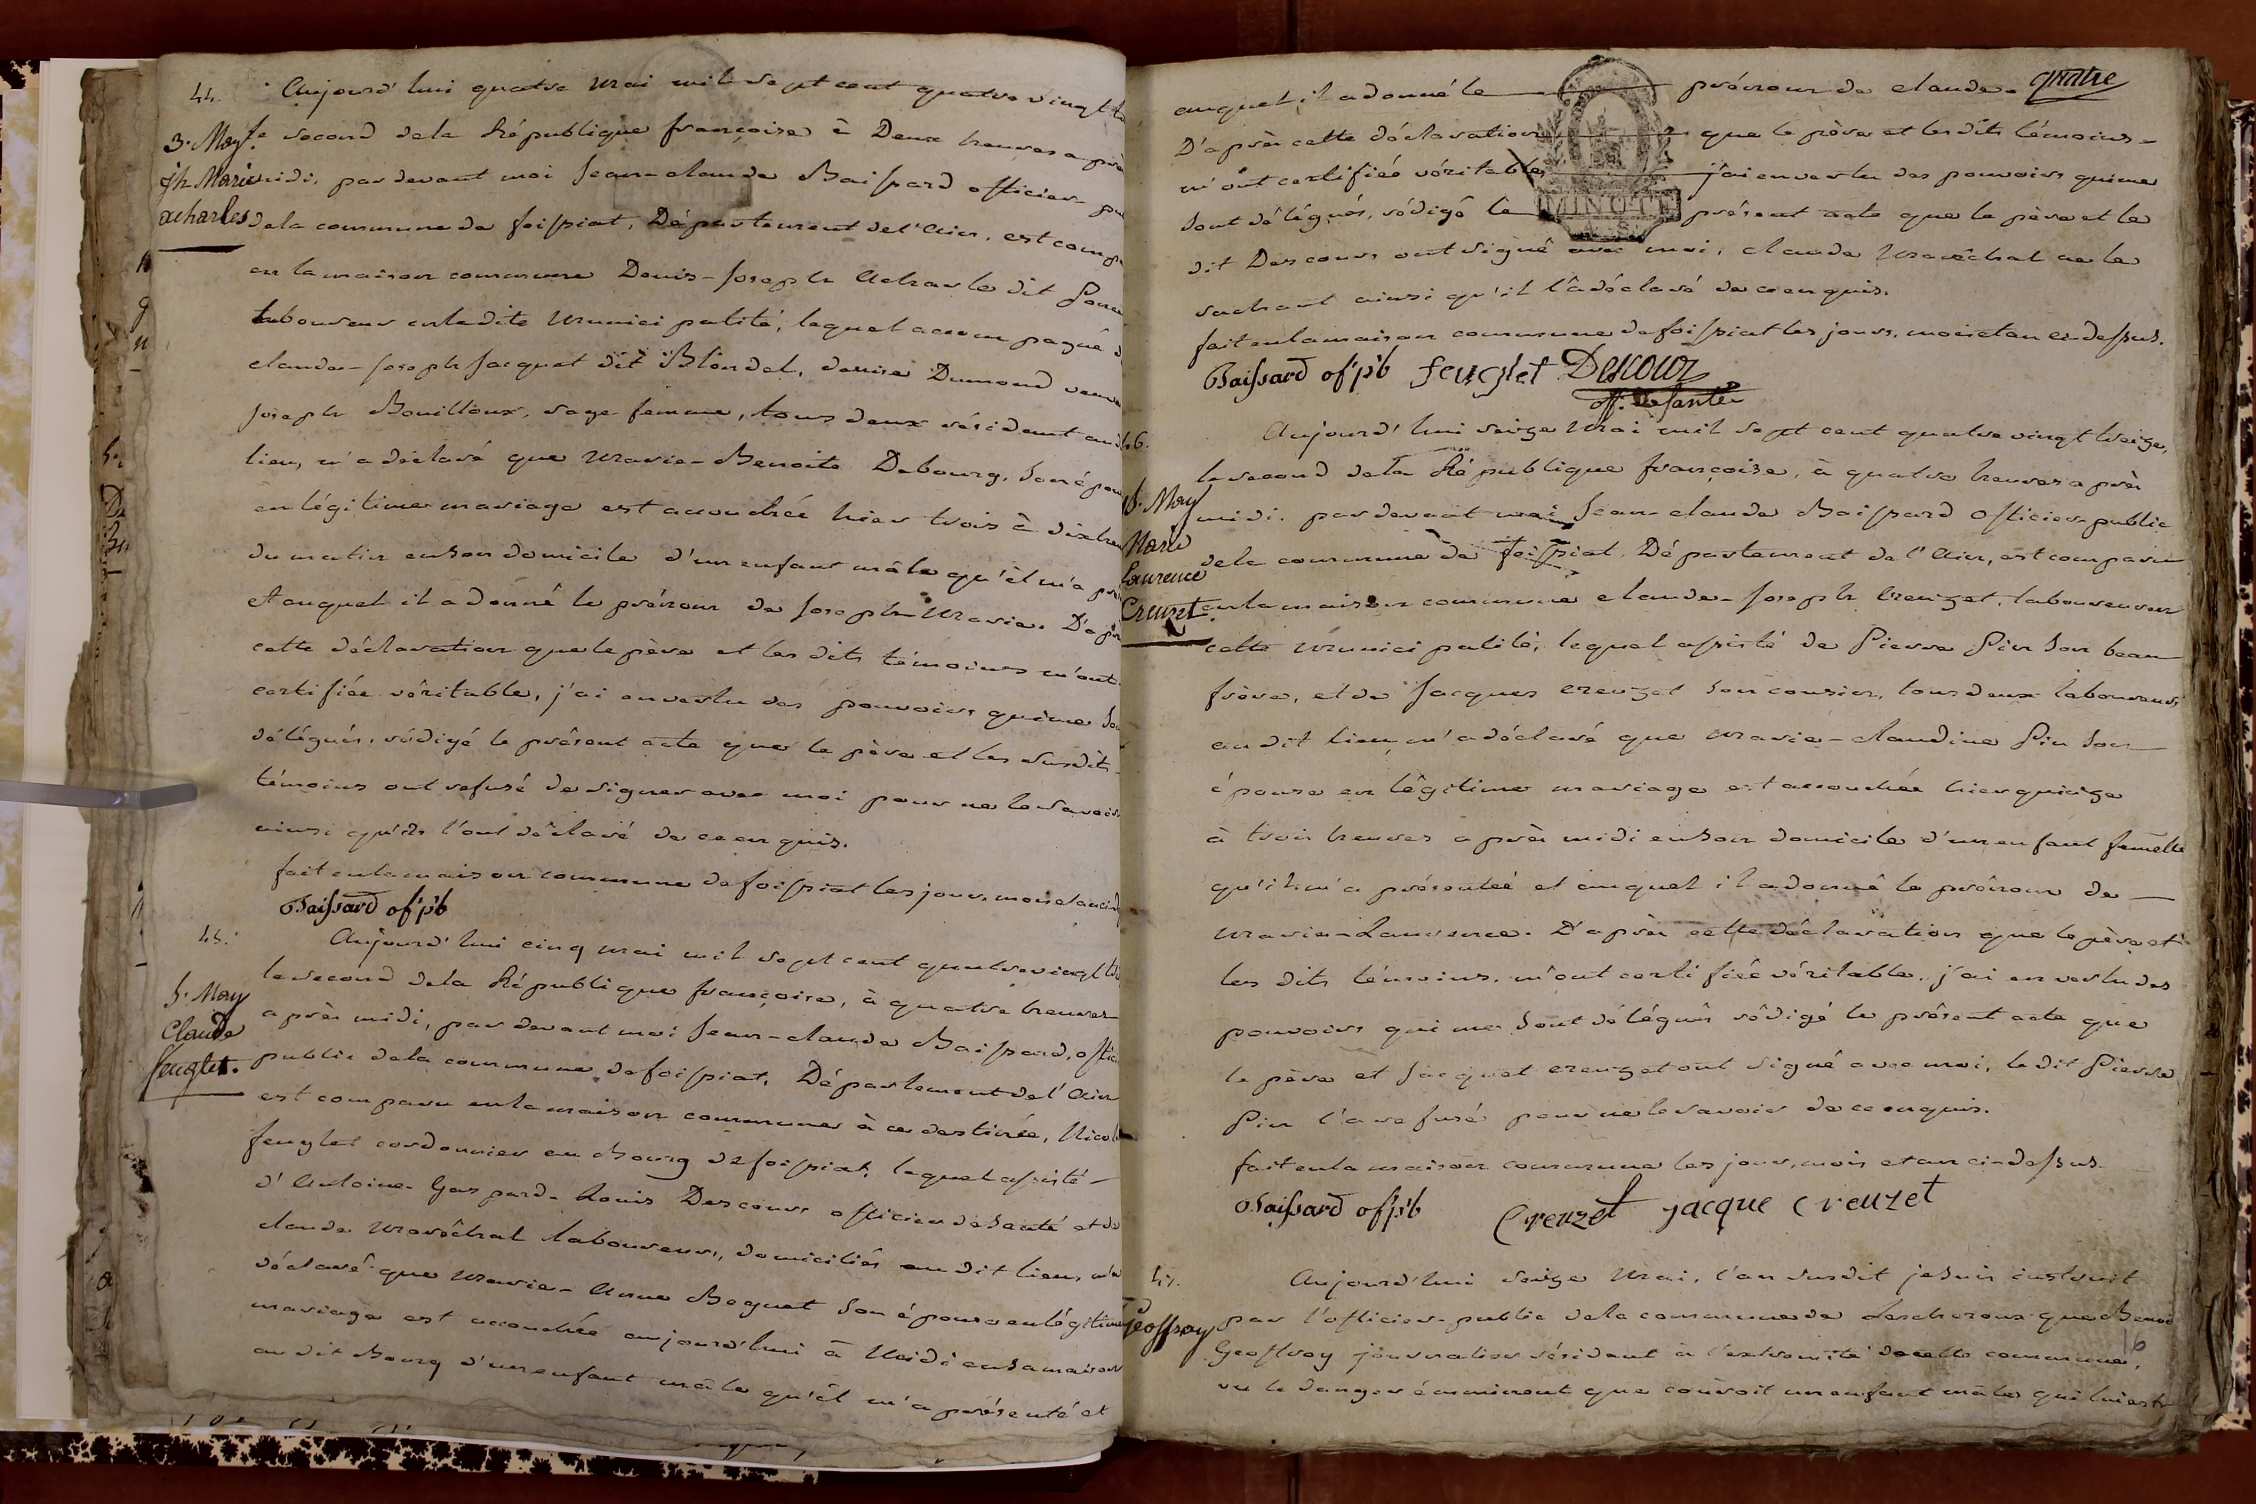 44.
3. May
jh. Marie
acharles
Aujourd'hui quatre mai mil sept cent quatre vingt
le second dela République françoise à Deux heures après
midi, par devant moi Jean-claude Baissard officier
dela commune de foissiat, Département de l'Ain, est
en la maison commune Denis-Joseph Acharle dit
laboureur enladite municipalité, lequel accompagné
claude-joseph Jacquet dit Blondel, denise Dumond
Joseph Bouilloux, sage femme, tous deux résident
lieu, m'a déclaré que Marie-Benoite Debourg, son
en légitime mariage est accouchée hier trois à dix
du matin enson domicile d'un enfant mâle qu'il m'a
et auquel il a donné le prénom de Joseph Marie. D'après
cette déclaration que le père et les dits témoins m'ont
certifiée véritable, j'ai en vertu des pouvoirs qui me
délégués, rédigé le présent acte que le père et les susdits
témoins ont refusé de signer avec moi pour ne le savoir
ainsi qu'ils l'ont déclaré de ce enquis.
fait en la maison commune de foissiat les jour, mois et an
Baissard of. p.b
45.
5. May
Claude
feuglet.
Aujourd'hui cinq mai mil sept cent quatre vingt
le second dela République françoise, à quatre heures
après midi, par devant moi Jean-claude Baissard,
public dela commune de foissiat, Département de l'Ain
est comparu en la maison commune à ce destinée,
feuglet cordonnier au Bourg de foissiat, lequel assisté
d'Antoine Gaspard Louis Descours officier de santé et de
claude Maréchal laboureur, domiciliés au dit lieu, m'a
déclaré que Marie-Anne Boguet son épouse en légitime
mariage est accouchée aujourd'hui à Midi en sa maison
au dit Bourg d'un enfant mâle qu'il m'a présenté et
quatre
auquel il a donné le prénom de claude.
D'après cette déclaration que le père et les dits témoins
m'ont certifiée véritable j'ai en vertu des pouvoirs qui me
sont délégués, rédigé le présent acte que le père et le
dit Descours ont signé avec moi, claude Maréchal ne le
sachant ainsi qu'il l'a déclaré de ce enquis.
fait en la maison commune de foissiat les jours, mois et an ci dessus.
MINUTE
Baissard of. p.b feuglet Descour
off. de santé
46.
May
Marie
Laurence
Creuzet.
Aujourd'hui seize Mai mil sept cent quatre vingt treize,
le second dela République françoise, à quatre heures après
midi. par devant moi Jean-claude Baissard officier public
dela commune de foissiat, Département de l'Ain, est comparu
en la maison commune claude-joseph Creuzet, laboureur en
cette Municipalité, lequel assisté de Pierre Pin son beau
frère, et de Jacques creuzet son cousin, tous deux laboureurs
au dit lieu, m'a déclaré que marie-claudine Pin son
épouse en légitime mariage est accouchée hier quinze
à trois heures après midi enson domicile d'un enfant femelle
qu'il m'a présenteé et auquel il a donné le prénom de
marie-Laurence. D'après cette déclaration que le père et
les dits témoins. m'ont certifiée véritable. j'ai en vertu des
pouvoirs qui me sont délégués rédigé le présent acte que
le père et jacques creuzet ont signé avec moi, le dit Pierre
Pin l'a refusé pour ne le savoir de ce enquis.
fait en la maison commune les jour, mois et an ci-dessus.
Baissard of. p.b Creuzet jacque creuzet
47.
geoffray
Aujourd'hui seize Mai, l'an susdit je suis instruit
par l'officier public dela commune de Lescheroux que Benoit
Geoffray journalier résident à l'extremité de cette commune,
vu le danger éminent que couroit un enfant mâle
16